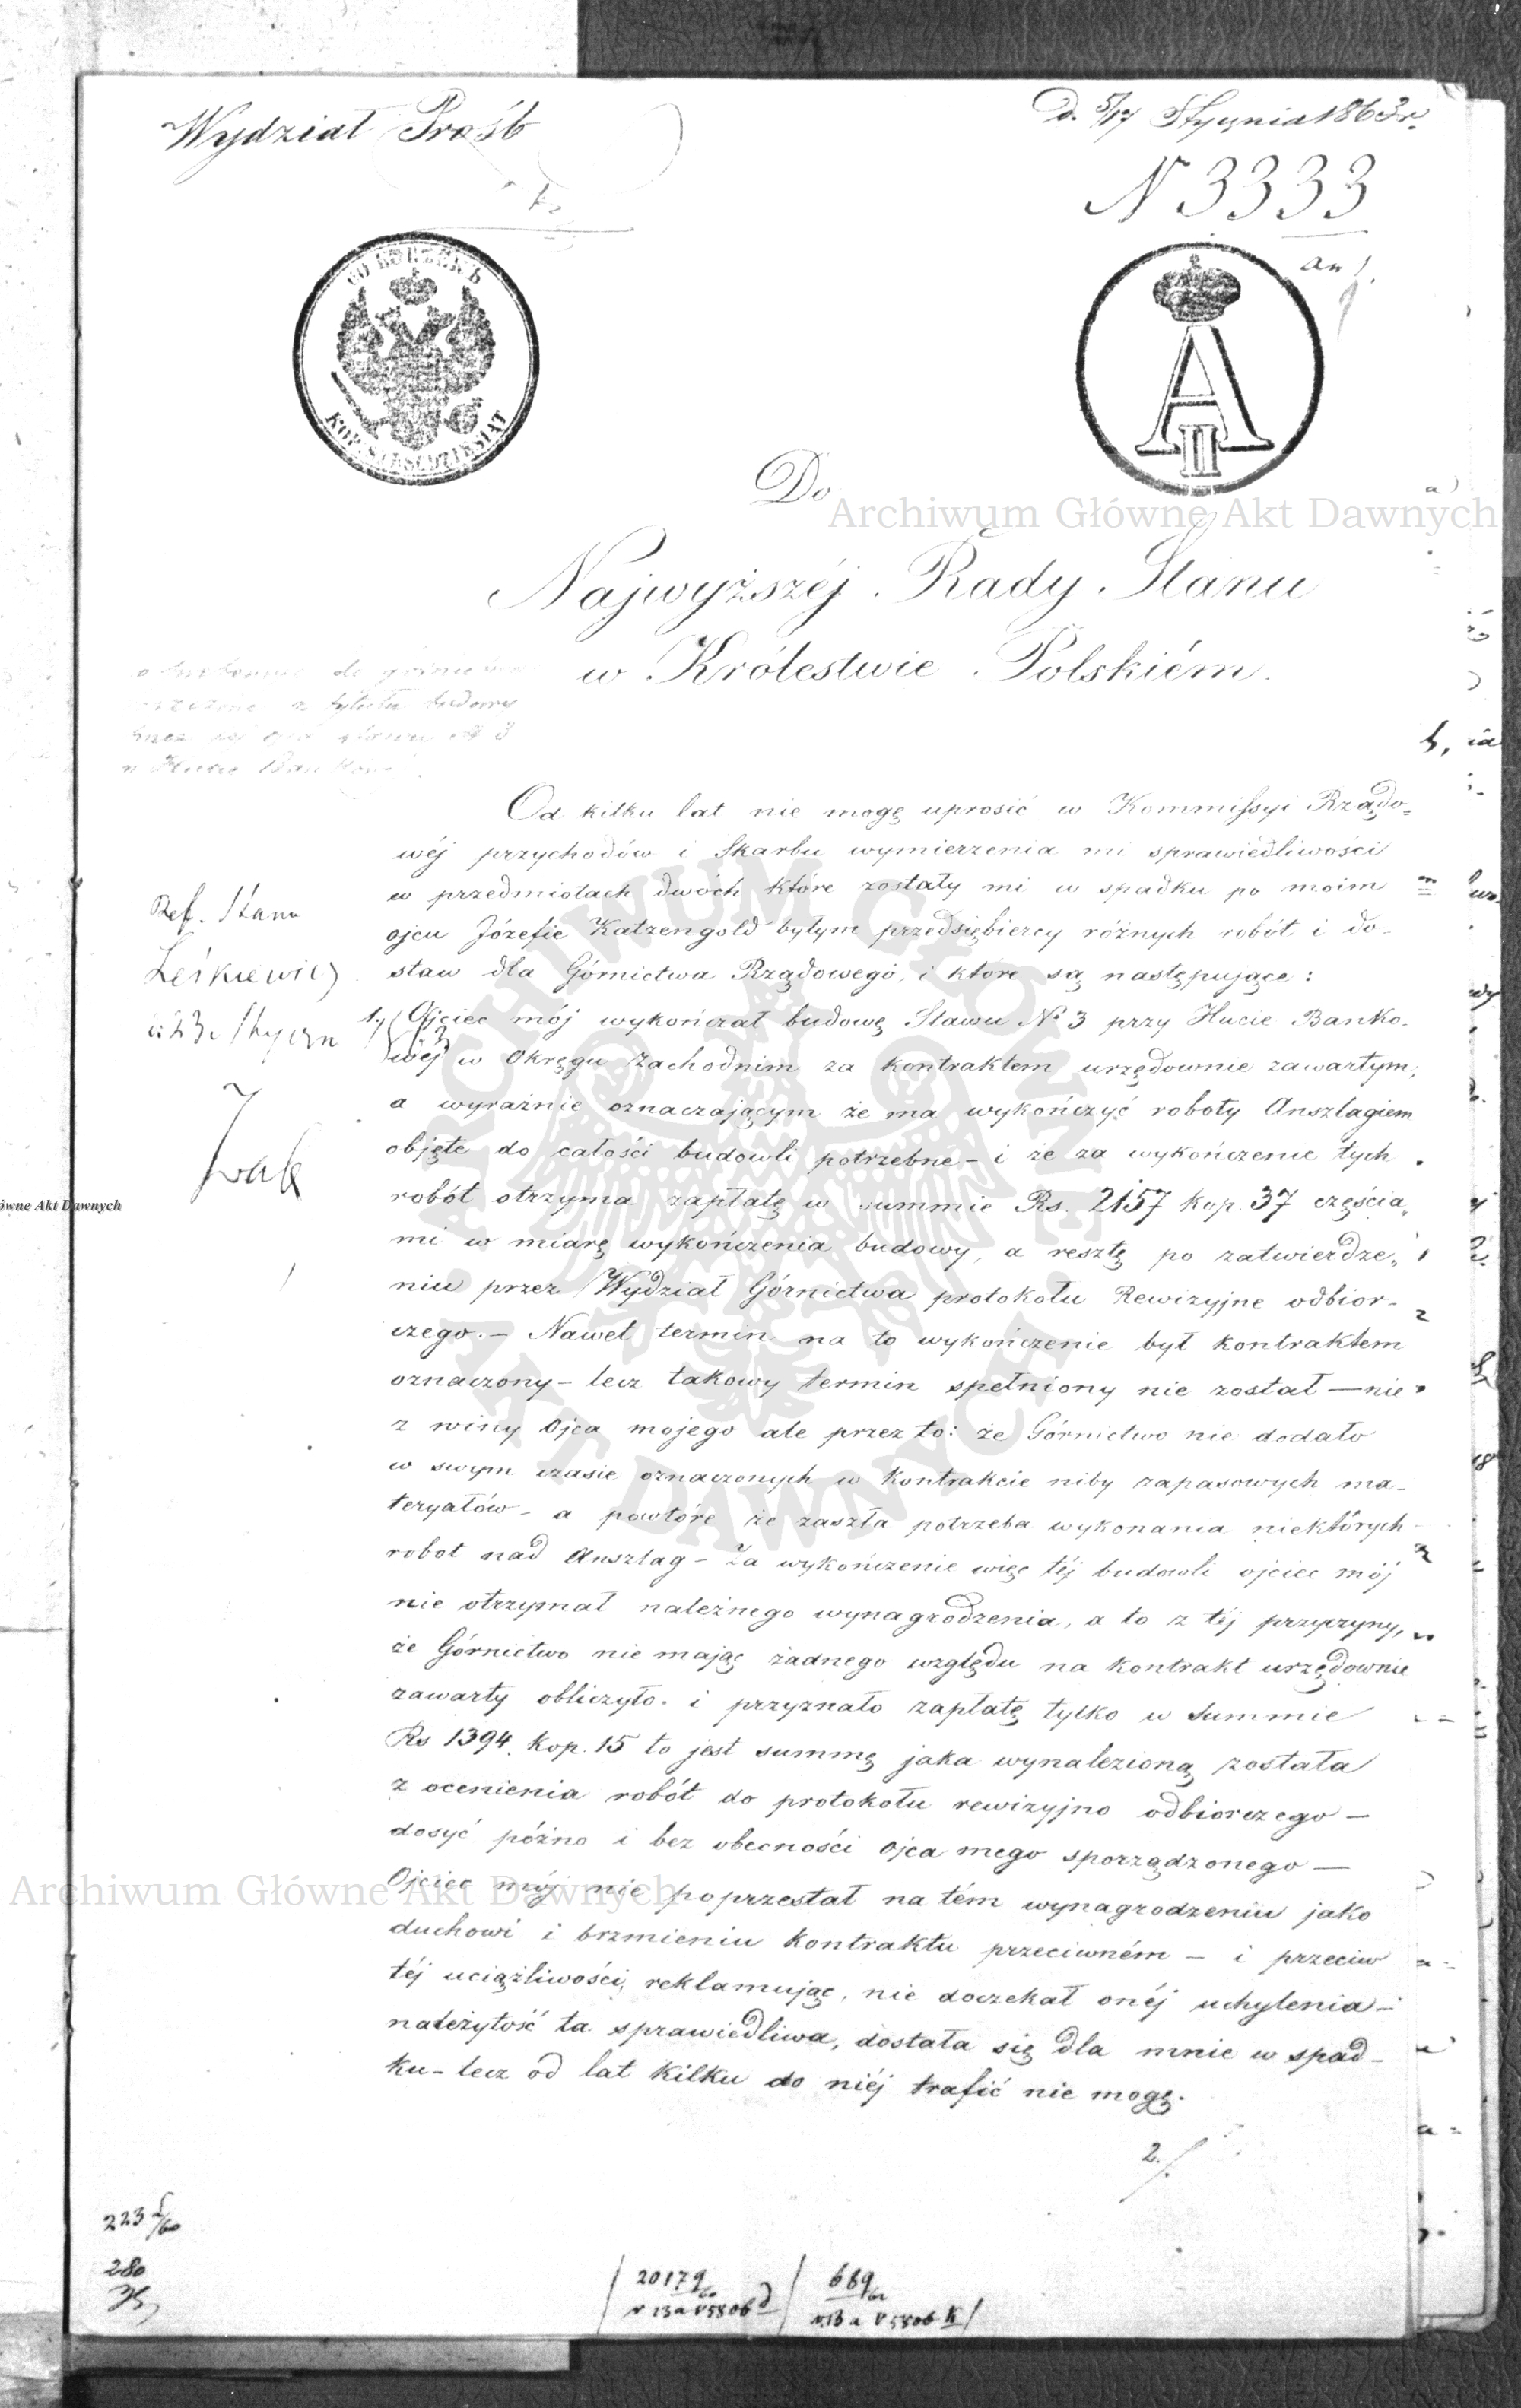 Wydział Próśb
D. 5/17 Stycznia 1863 r.
N 3333
60 КОПѢЕКЪ
KOP. SZEŚĆDZIESIĄT
A II
an 1.
Do
Archiwum Główne Akt Dawnych
Najwyższéj Rady Stanu
w Królestwie Polskiém.
z tytułu budowy
stawu N 3
w Hucie Bankowej
Od kilku lat nie mogę uprosić w Kommissyi Rządo=
wéj przychodów i Skarbu wymierzenia mi sprawiedliwości
w przedmiotach dwóch które zostały mi w spadku po moim
ojcu Józefie Katzengold byłym przedsiębiercy różnych robót i do-
staw dla Górnictwa Rządowego, i które są następujące:
Ref. Stanu
Leśkiewicz
23 Stycznia
1./ Ojciec mój wykończał budowę Stawu No 3 przy Hucie Banko-
wéj w Okręgu Zachodnim za kontraktem urzędownie zawartym,
a wyraźnie oznaczającym że ma wykończyć roboty Anszlagiem
objęte do całości budowli potrzebne – i że za wykończenie tych
robót otrzyma zapłatę w summie Rs. 2157 kop. 37 częścia„
mi w miarę wykończenia budowy, a resztę po zatwierdze„
niu przez Wydział Górnictwa protokołu Rewizyjne odbior-
czego. – Nawet termin na to wykończenie był kontraktem
oznaczony – lecz takowy termin spełniony nie został — nie
z winy Ojca mojego ale przez to: że Górnictwo nie dodało
w swym czasie oznaczonych w kontrakcie niby zapasowych ma-
teryałów – a powtóre że zaszła potrzeba wykonania niektórych
robot nad Anszlag – Za wykończenie więc téj budowli ojciec mój
nie otrzymał należnego wynagrodzenia, a to z téj przyczyny,
że Górnictwo nie mając żadnego względu na kontrakt urzędownie
zawarty obliczyło i przyznało zapłatę tylko w Summie
Rs 1394 kop. 15 to jest summę jaka wynalezioną została
z ocenienia robót do protokołu rewizyjno odbiorczego —
dosyć późno i bez obecności Ojca mego sporządzonego —
Ojciec mój nie poprzestał na tém wynagrodzeniu jako
duchowi i brzmieniu kontraktu przeciwném – i przeciw
téj uciążliwości, reklamując, nie doczekał onéj uchylenia –
należytość ta sprawiedliwa, dostała się dla mnie w spad-
ku – lecz od lat kilku do niéj trafić nie mogę.
2./
Archiwum Główne Akt Dawnych
ARCHIWUM GŁÓWNE
AKT DAWNYCH
ówne Akt Dawnych
280
20179/60
N 13a V 5806 d
669
N 13 a V 5806 K